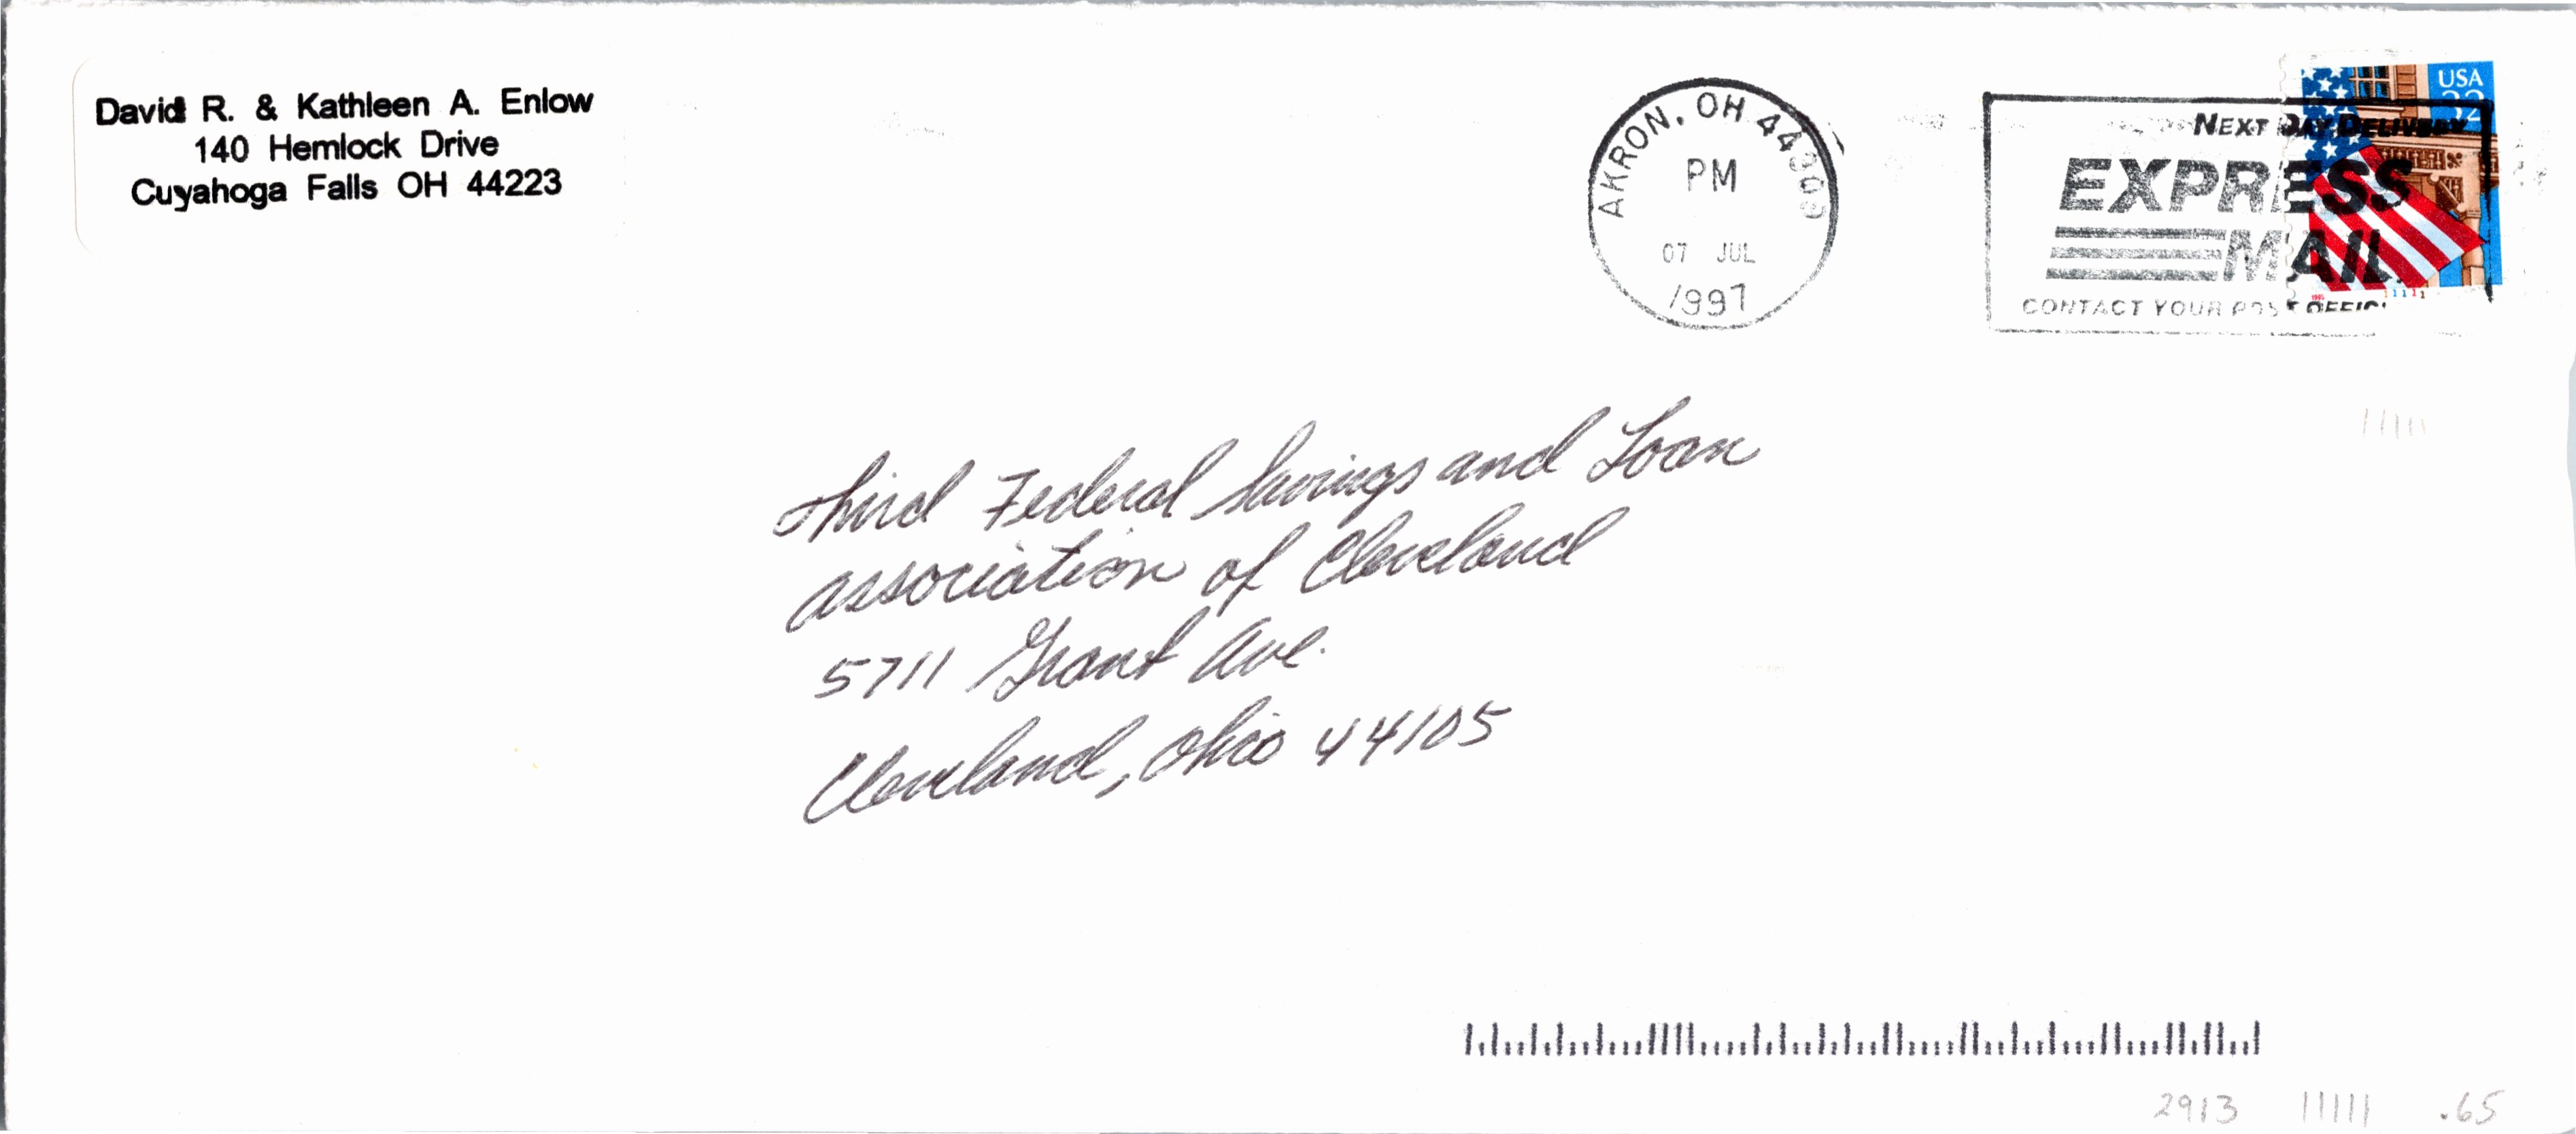 David R. & Kathleen A. Enlow
140 Hemlock Drive
Cuyahoga Falls OH 44223
AKRON, OH 44309
PM
07 JUL
1997
USA
32
NEXT DAY DELIVERY
EXPRESS
MAIL
CONTACT YOUR POST OFFICE
1995
11111
11111
Third Federal Savings and Loan
association of Cleveland
5711 Grant Ave.
Cleveland, Ohio 44105
2913 11111 .65